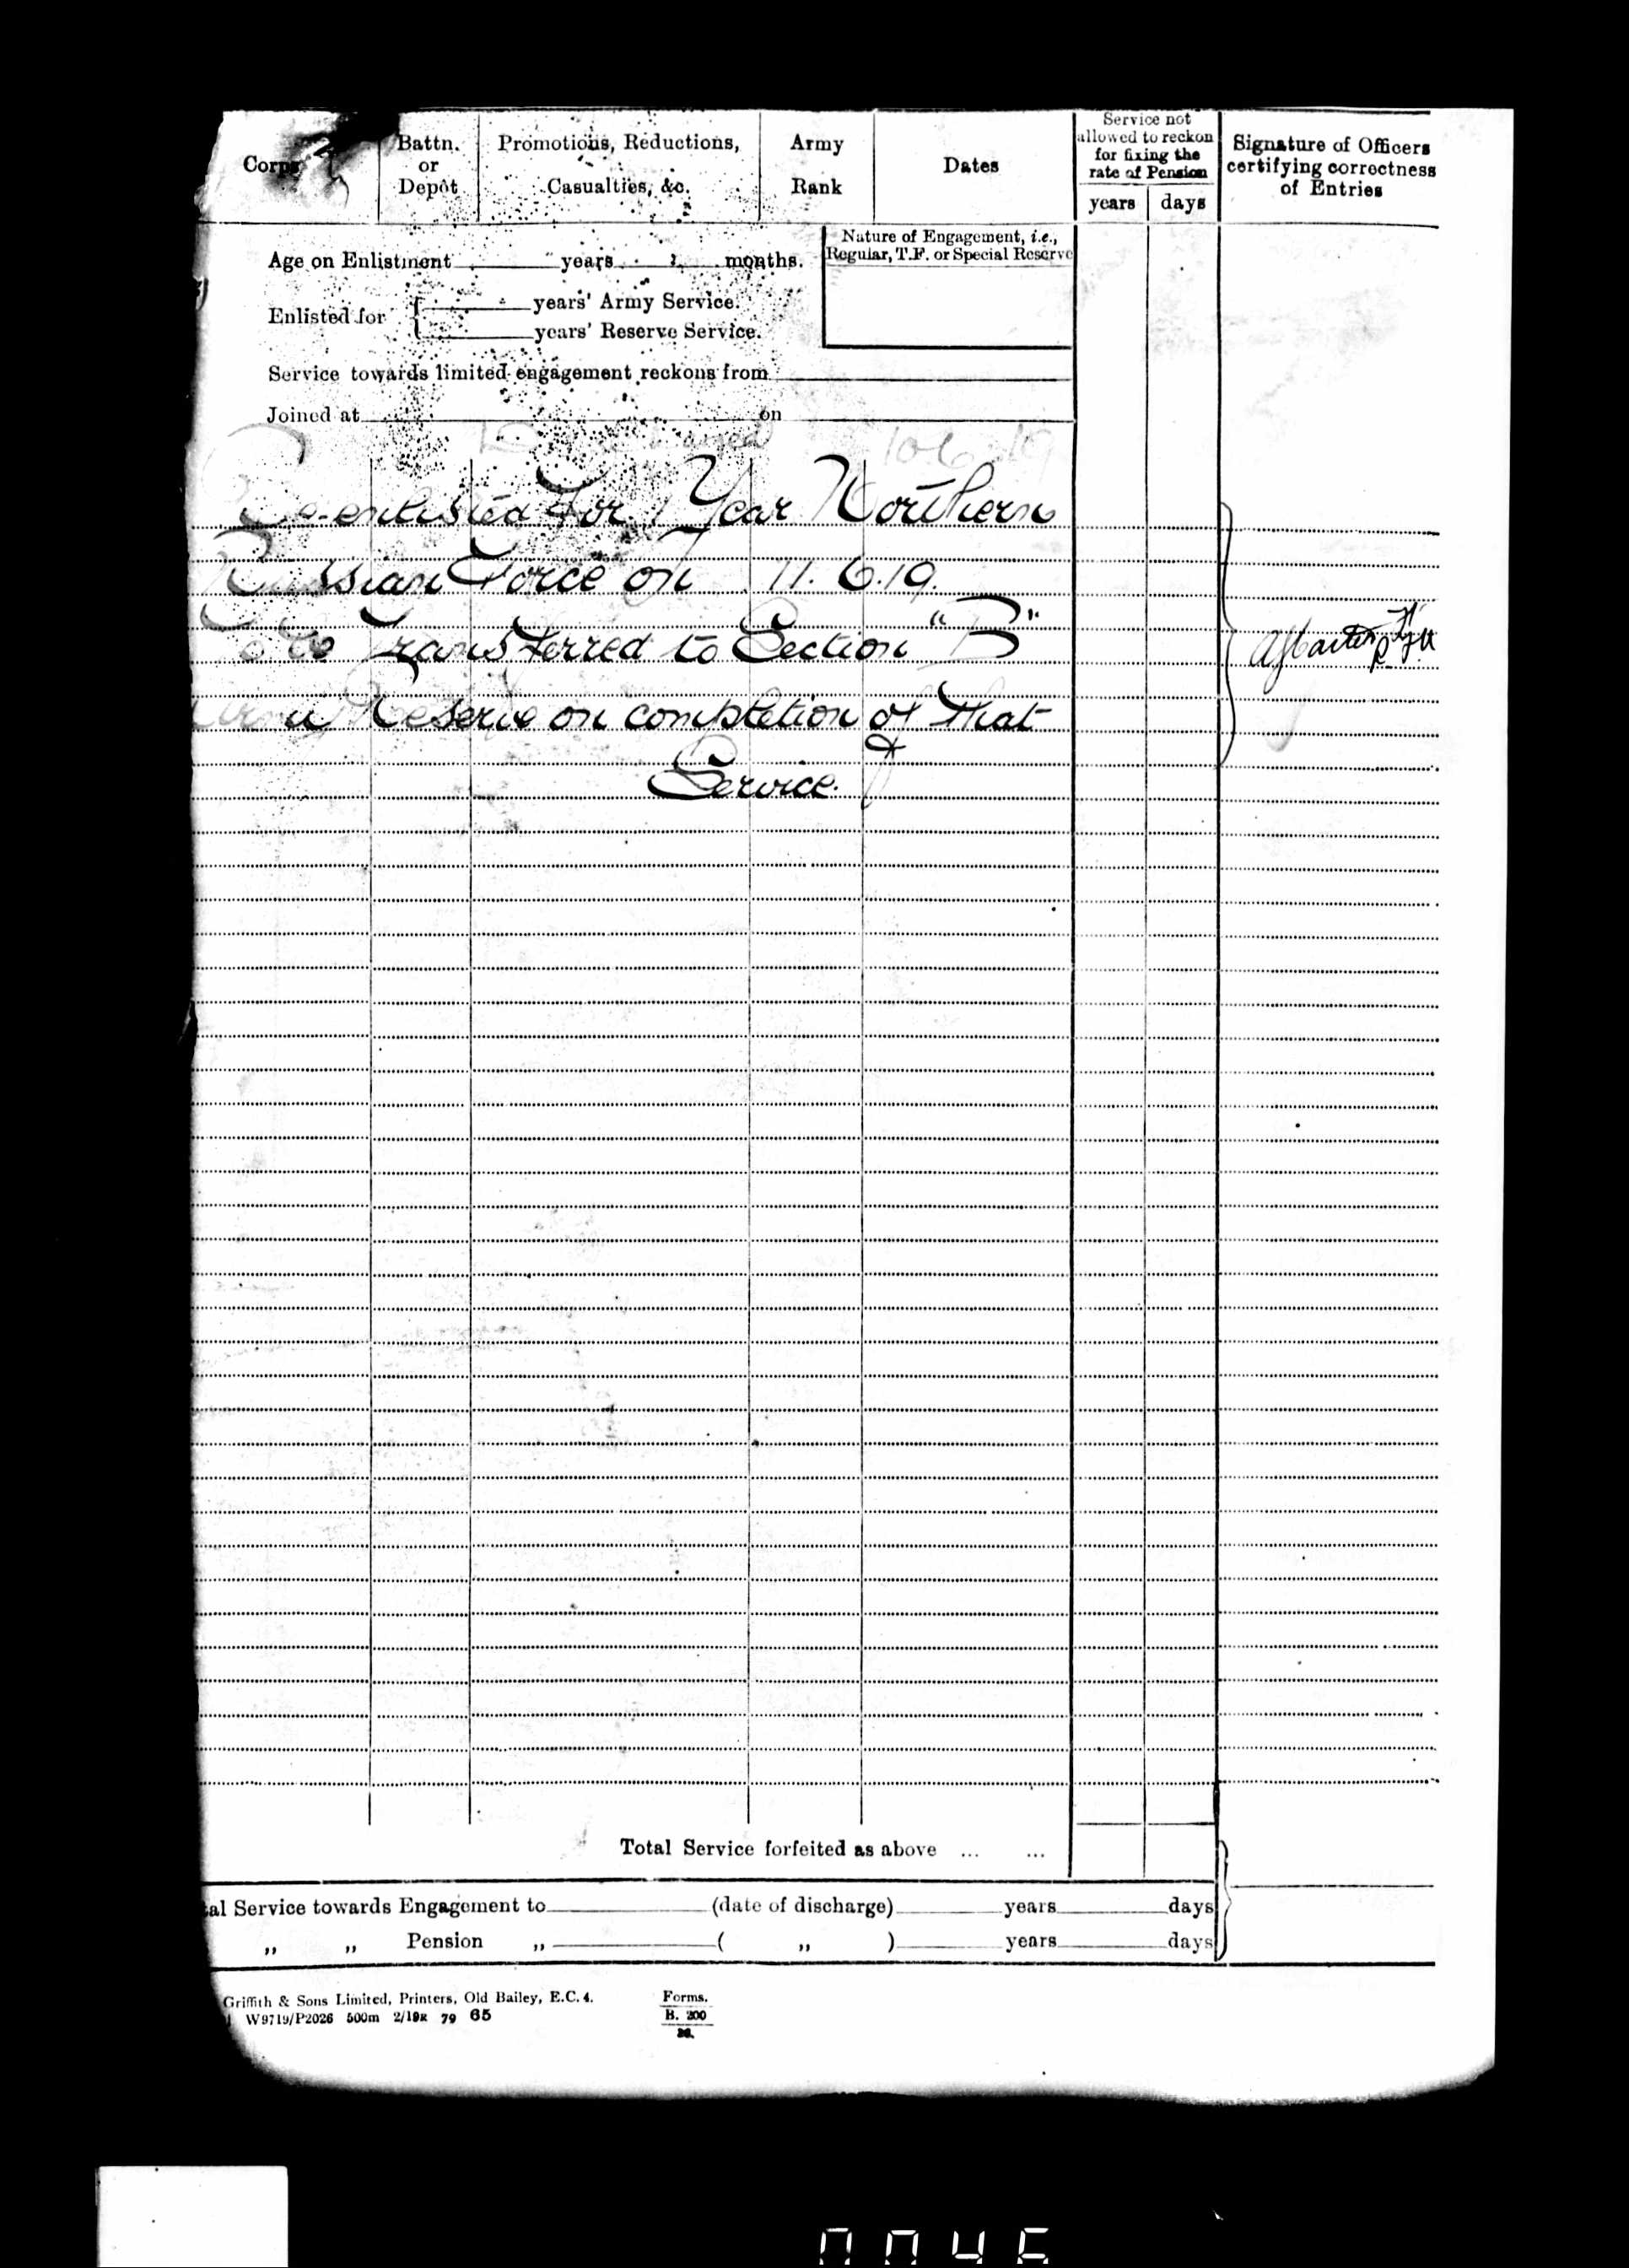 Corps
Battn. or Depôt
Promotions, Reductions, Casualties, &c.
Army Rank
Dates
Service not allowed to reckon for fixing the rate of Pension
years days
Signature of Officers certifying correctness of Entries
Age on Enlistment years months.
Nature of Engagement, i.e., Regular, T.F. or Special Reserve
Enlisted for
years' Army Service.
years' Reserve Service.
Service towards limited engagement reckons from
Joined at on
10 6 19
Re-enlisted For 1 Year Northern
Russian Force on 11.6.19.
To be Transferred to Section "B"
Army Reserve on completion of that
Service.
Total Service forfeited as above ... ...
al Service towards Engagement to (date of discharge) years days
„ „ Pension „ ( „ ) years days
Griffith & Sons Limited, Printers, Old Bailey, E.C. 4.
W9719/P2026 500m 2/19R 79 65
Forms.
B. 200
0046